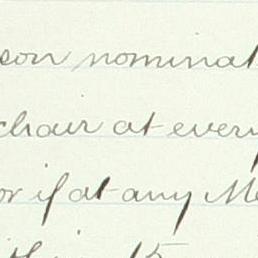 son nominat
chair at every
or if at any Me
within 15